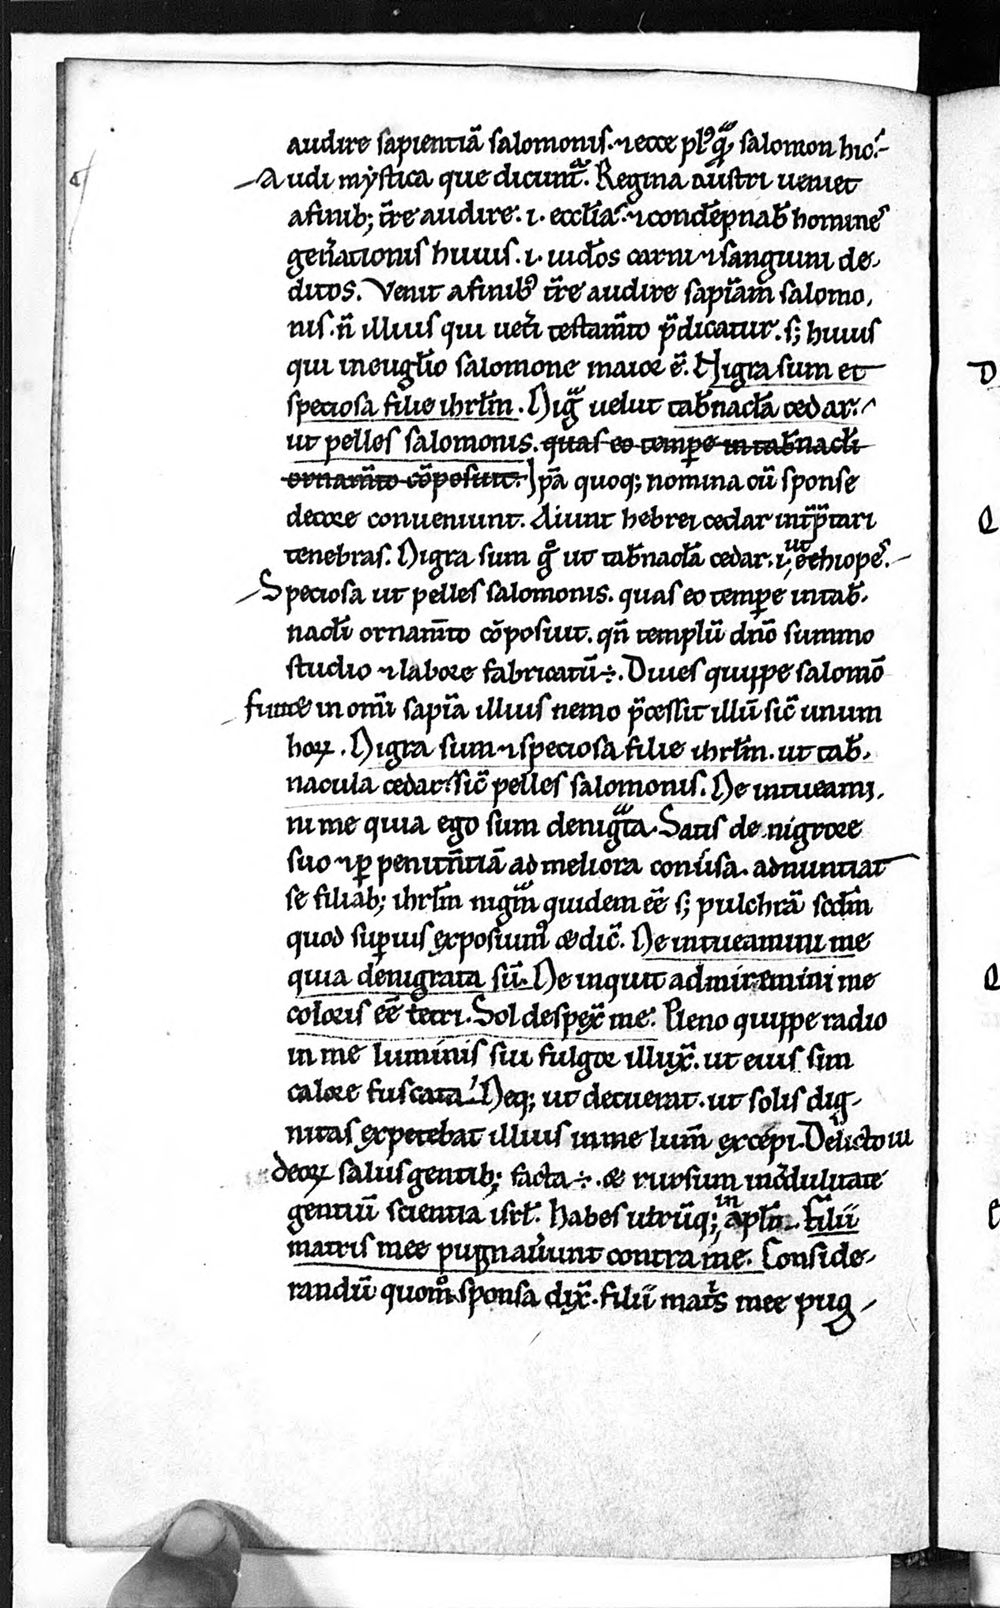 audire sapientiā salomonis. ⁊ ecce pl᷒ q̄ᵃ salomon hic.
Audi mystica que dicunt̄. Regina austri ueniet
a finib; t̄re audire. i. ecclīa. ⁊ condēpnab̄ homines
gen̄ationis huius. i. iud̄os carni ⁊ sanguini de-
ditos. Venit a finib᷒ t̄re audire sapīam salomo-
nis. n̄ illius qui uet̄i testam̄to p̄dicatur. s; huius
qui in euglīo salomone maior ē. Nigra sum et
speciosa filie ihrl̄m. Nigᵃ uelut tab̄nacl̄a cedar.
ut pelles salomonis. quas eo tempe in tab̄nacl̄i
ornam̄to cōposuit. Ip̄a quoq; nomina cū sponse
decore conueniunt. Aiunt hebrei cedar int̄p̄tari
tenebras. Nigra sum gͦ ut tab̄nacl̄a cedar. i. ut ethiopes.
Speciosa ut pelles salomonis. quas eo tempe in tab̄-
nacl̄i ornam̄to cōposuit. qn̄ templū dn̄o summo
studio ⁊ labore fabricatū ÷. Diues quippe salomō
fuit & in om̄i sapīa illius nemo p̄cessit illū sic̄ unum
hoꝝ. Nigra sum ⁊ speciosa filie ihrl̄m. ut tab̄-
nacula cedar. sic̄ pelles salomonis. Ne intueami-
ni me quia ego sum denigᵃta. Satis de nigrore
suo ⁊ ꝑ penitn̄tiā ad meliora conu̓sa. adnuntiat
se filiab; ihrl̄m nigᵃm quidem eē s; pulchrā scd̄m
quod sup̱ius exposuim᷒ & dic̄. Ne intueamini me
quia denigrata sū. Ne inquit admiremini me
coloris eē tetri. Sol despex̄ me. Pleno quippe radio
in me luminis sui fulgor illux̄. ut eius sim
calore fuscata. Neq; ut decuerat. ut solis dig-
nitas expetebat illius in me lum̄ excepi. Delicto iu
deoꝝ salus gentib; facta ÷. & rursum incᵉdulitate
gentiū scientia isrl̄. habes utrūq; in apl̄o. Filii
matris mee pugnau̓unt contra me. Conside-
randū quom̊ sponsa dix̄. filii mat̓s mee pug-